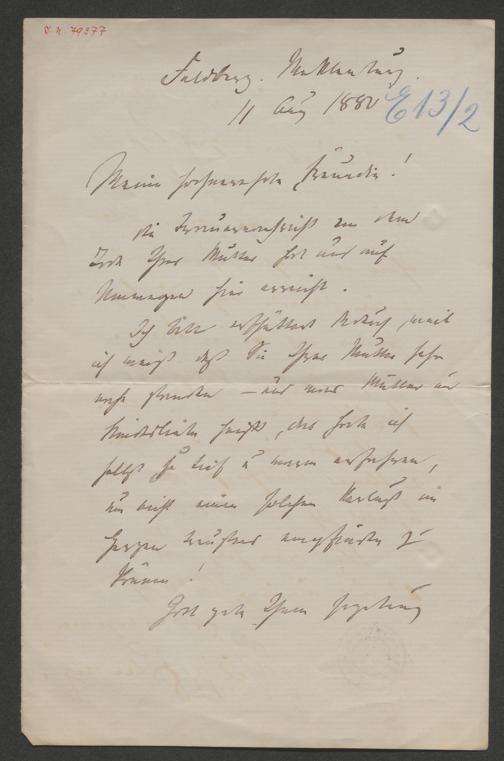 I. N. 79377
Feldberg. Mecklenburg.
11 Aug 1880
E 13/2
Meine hochverehrte Freundin!
die Trauernachricht von dem
Tode Ihrer Mutter hat uns auf
Umwegen hier erreicht.
Ich bin erschüttert dadurch, weil
ich weiß daß Sie Ihrer Mutter sehr
nahe standen – und was Mutter und
Kindesliebe heißt, das habe ich
selbst zu tief u warm erfahren,
um nicht einen solchen Verlust im
Herzen mit empfinden zu
können!
Gott gebe Ihnen Ergebung